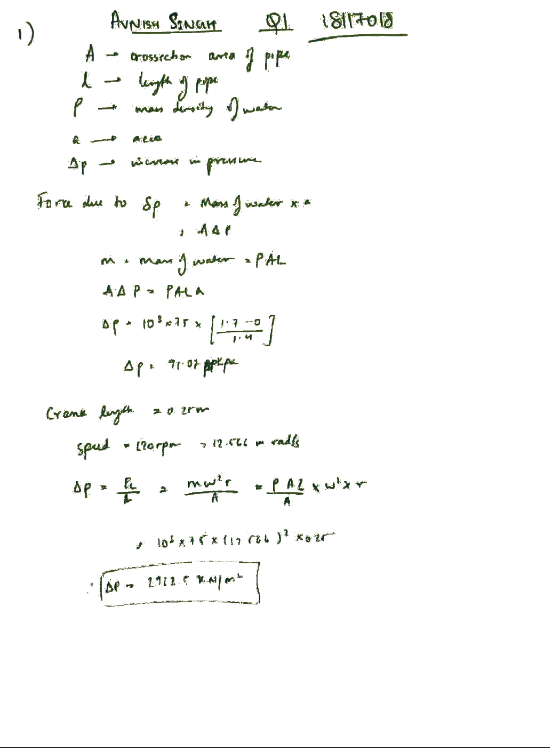 1) AVNISH SINGH Q1 18117018
A → crossection area of pipe
L → length of pipe
ρ → mass density of water
a → acce
Δp → increase in pressure
Force due to δp = Mass of water × a
= AΔP
m = mass of water = ρAL
AΔP = ρALa
Δp = 10³ × 75 × [1.7 - 0 / 1.4]
Δp = 91.07 kpa
Crank length = 0.25m
speed = 120 rpm = 12.566 rad/s
Δp = FL/A = mw²r/A = ρAL/A × w² × r
= 10³ × 75 × (12.566)² × 0.25
∴ ΔP = 2962.5 KN/m²